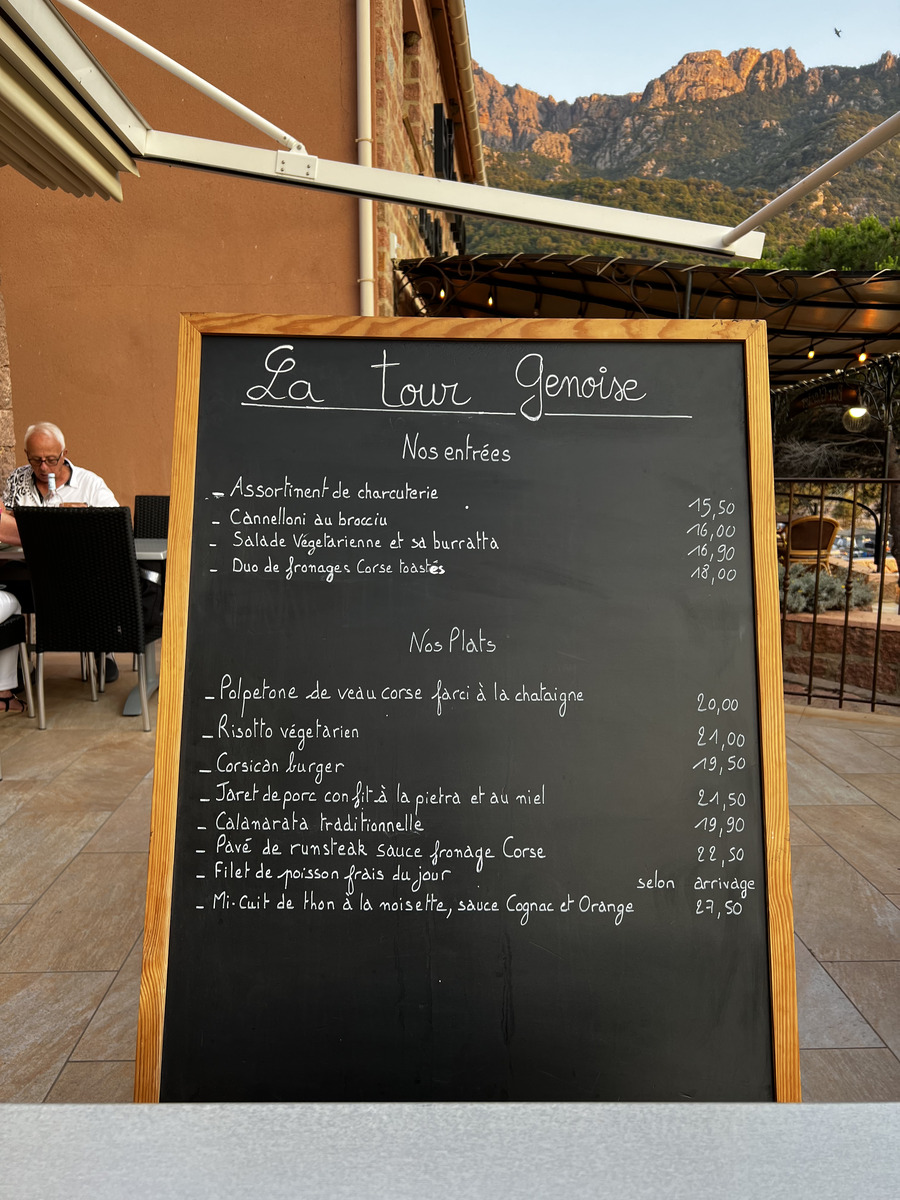 La tour Genoise
Nos entrées
- Assortiment de charcuterie 15,50
- Cannelloni au brocciu 16,00
- Salade Végetarienne et sa burratta 16,90
- Duo de fromages Corse toastés 18,00
Nos Plats
- Polpetone de veau corse farci à la chataigne 20,00
- Risotto végetarien 21,00
- Corsican burger 19,50
- Jaret de porc confit à la pietra et au miel 21,50
- Calamarata traditionnelle 19,90
- Pavé de rumsteak sauce fromage Corse 22,50
- Filet de poisson frais du jour selon arrivage
- Mi-cuit de thon à la noisette, sauce Cognac et Orange 27,50